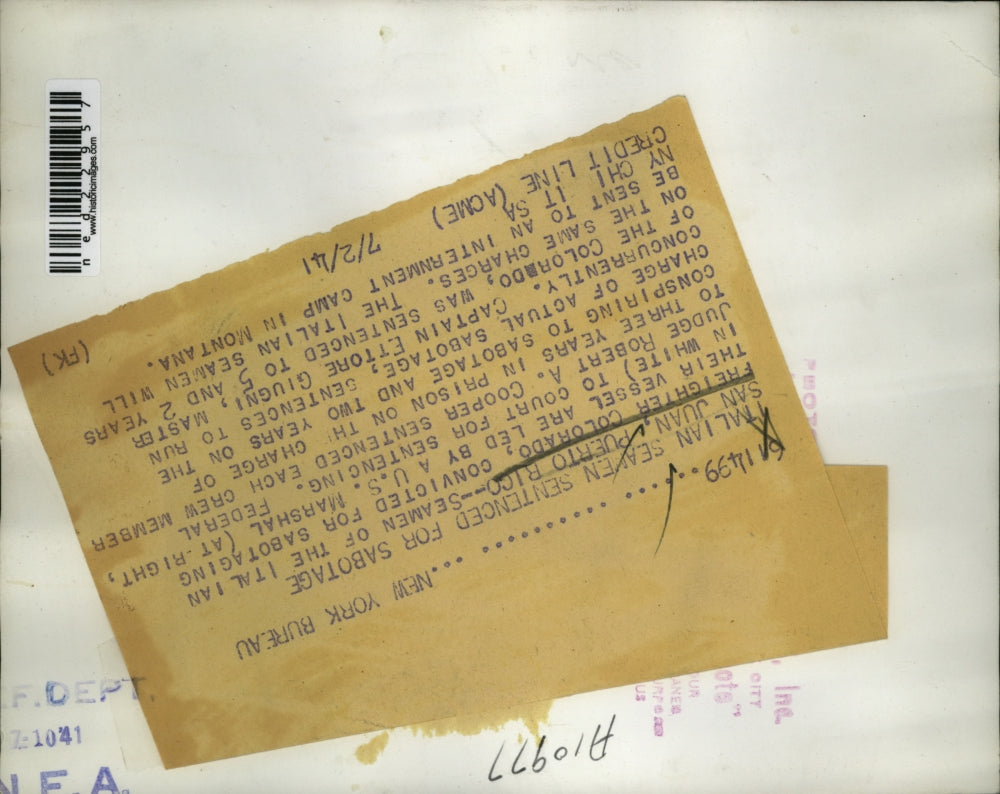 NEW YORK BUREAU
P 11499
ITALIAN SEAMEN SENTENCED FOR SABOTAGE
SAN JUAN, PUERTO RICO--SEAMEN OF THE ITALIAN
FREIGHTER, COLORADO, CONVICTED FOR SABOTAGING
THEIR VESSEL ARE LED BY A U.S. MARSHAL (AT RIGHT,
IN WHITE) TO COURT FOR SENTENCING. FEDERAL
JUDGE ROBERT A. COOPER SENTENCED EACH CREW MEMBER
TO THREE YEARS IN PRISON ON TH CHARGE OF
CONSPIRING TO SABOTAGE AND TWO YEARS ON THE
CHARGE OF ACTUAL SABOTAGE, SENTENCES TO RUN
CONCURRENTLY. CAPTAIN ETTORE GIUGNI, MASTER
OF THE COLORADO, WAS SENTENCED TO 5 AND 2 YEARS
ON THE SAME CHARGES. THE ITALIAN SEAMEN WILL
BE SENT TO AN INTERNMENT CAMP IN MONTANA.
NY CHI IT SA
CREDIT LINE (ACME) 7/2/41 (FK)
A10977
ned22957
www.historicimages.com
F. DEPT.
7-10 41
N.E.A.
Inc.
CITY
US